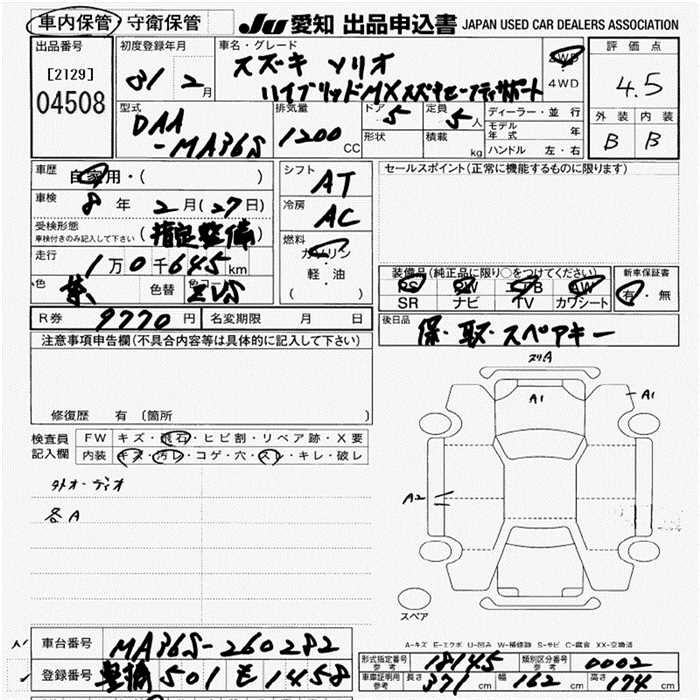 車内保管／守衛保管 JU 愛知 出品申込書 JAPAN USED CAR DEALERS ASSOCIATION
出品番号 初度登録年月 車名・グレード 2WD 評価点
[2129] 31 2月 スズキ ソリオ 4WD 4.5
04508 ハイブリッドMX スズキセーフティサポート
型式 排気量 ドア 定員 ディーラー・並行 外装 内装
DAA 5 5人 モデル年式 年 B B
-MA36S 1200cc 形状 積載 kg ハンドル 左・右
車歴 自家用・( ) シフト AT セールスポイント(正常に機能するものに限ります)
車検 8年 2月(27日) 冷房 AC
受検形態 (指定整備)
車検付きのみ記入して下さい 燃料
走行 1万0千645km ガソリン
軽・油
( )
色 紫 色替 色コード ZVS
装備品(純正品に限り○をつけてください) 新車保証書
PS PW エアB AW 有・無
SR ナビ TV カワシート
R券 9770円 名変期限 月 日 後日品 保・取・スペアキー
注意事項申告欄(不具合内容等は具体的に記入して下さい)
スリA
A1 A1
修復歴 有 (箇所
検査員 FW キズ・飛石・ヒビ割・リペア跡・X要
記入欄 内装 キズ・汚レ・コゲ・穴・スレ・キレ・破レ
外オーディオ A2
各A
スペア
A-キズ E-エクボ U-凹み W-補修跡 S-サビ C-腐食 XX-交換済
車台番号 MA36S-260282
型式指定番号 参考 18145 類別区分番号 参考 0002
登録番号 501 1458
車庫証明用 参考 長さ 371cm 幅 162cm 高さ 174cm